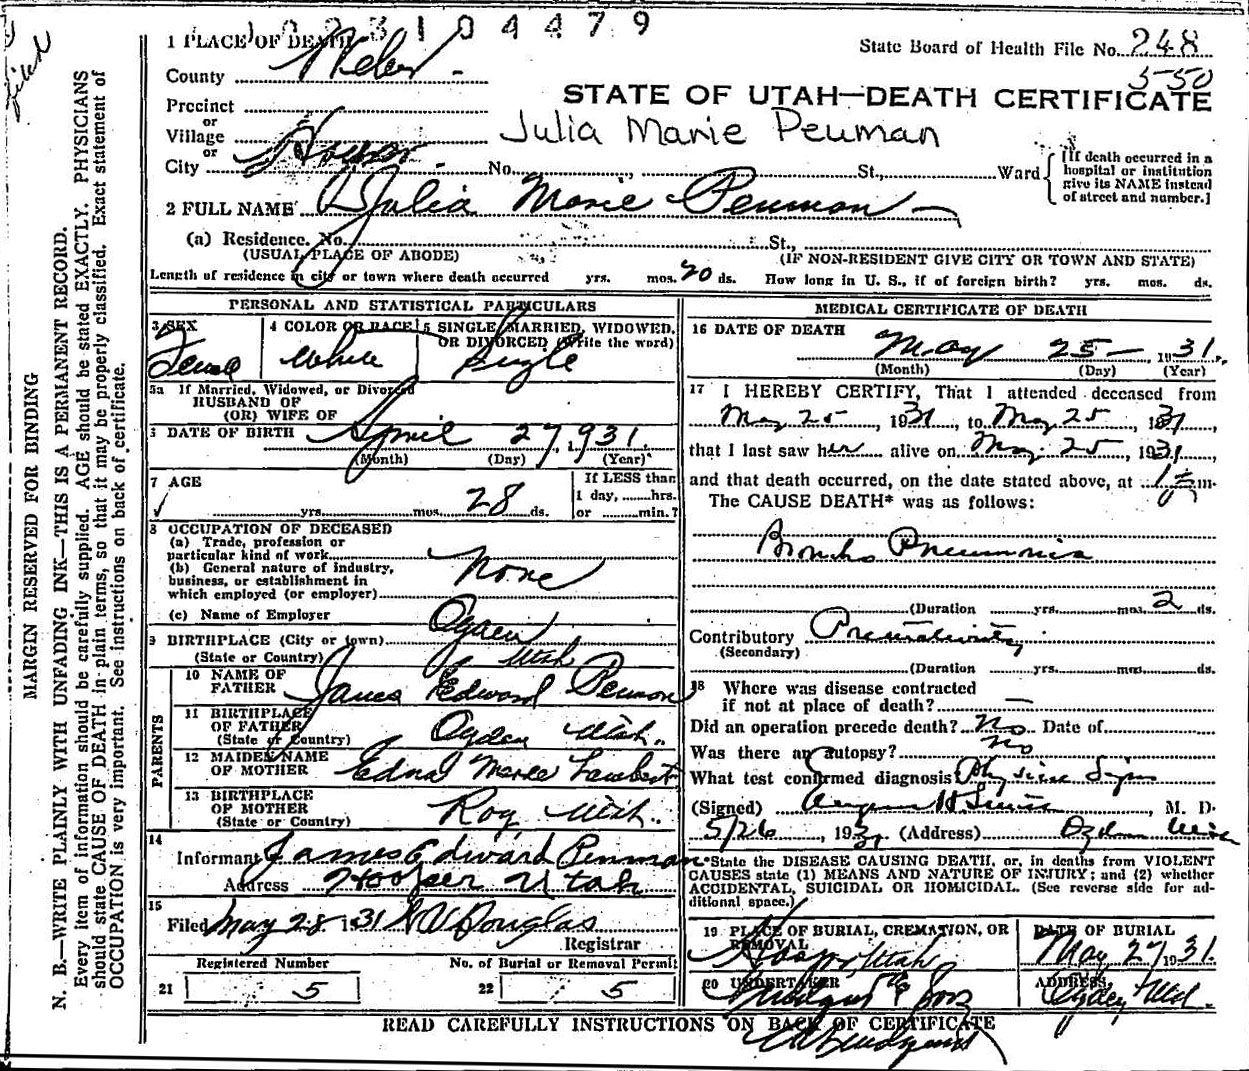 0 2 3 1 0 4 4 7 9
1 PLACE OF DEATH
State Board of Health File No. 248
550
County Weber
STATE OF UTAH—DEATH CERTIFICATE
Precinct
or
Village
Julia Marie Peuman
or
City Hooper No. St., Ward
[If death occurred in a
hospital or institution
give its NAME instead
of street and number.]
2 FULL NAME Julia Marie Penman
(a) Residence. No. St.,
(USUAL PLACE OF ABODE) (IF NON-RESIDENT GIVE CITY OR TOWN AND STATE)
Length of residence in city or town where death occurred yrs. mos. 20 ds. How long in U. S., if of foreign birth? yrs. mos. ds.
PERSONAL AND STATISTICAL PARTICULARS
3 SEX 4 COLOR OR RACE 5 SINGLE, MARRIED, WIDOWED,
OR DIVORCED (Write the word)
Female White Single
5a If Married, Widowed, or Divorced
HUSBAND OF
(OR) WIFE OF
DATE OF BIRTH April 27, 1931.
(Month) (Day) (Year)
7 AGE If LESS than
1 day, hrs.
yrs. mos. 28 ds. or min.?
8 OCCUPATION OF DECEASED
(a) Trade, profession or
particular kind of work
(b) General nature of industry,
business, or establishment in
which employed (or employer) None
(c) Name of Employer
9 BIRTHPLACE (City or town) Ogden
(State or Country) Utah
PARENTS
10 NAME OF
FATHER James Edward Penman
11 BIRTHPLACE
OF FATHER
(State or Country) Ogden Utah.
12 MAIDEN NAME
OF MOTHER Edna Maree Lambert
13 BIRTHPLACE
OF MOTHER
(State or Country) Roy Utah.
14
Informant James Edward Penman
Address Hooper Utah
15
Filed May 28 1931 Douglas
Registrar
Registered Number No. of Burial or Removal Permit
21 5 22 5
MEDICAL CERTIFICATE OF DEATH
16 DATE OF DEATH
May 25— 1931.
(Month) (Day) (Year)
17 I HEREBY CERTIFY, That I attended deceased from
May 25, 1931, to May 25, 1931,
that I last saw her alive on May 25, 1931,
and that death occurred, on the date stated above, at m.
The CAUSE DEATH* was as follows:
Broncho Pneumonia
(Duration yrs. mos. 2 ds.
Contributory Prematurity
(Secondary)
(Duration yrs. mos. ds.
18 Where was disease contracted
if not at place of death? —
Did an operation precede death? No Date of
Was there an autopsy? No
What test confirmed diagnosis? Physical Signs
(Signed) M. D.
5/26, 1931 (Address) Ogden Utah
*State the DISEASE CAUSING DEATH, or, in deaths from VIOLENT
CAUSES state (1) MEANS AND NATURE OF INJURY; and (2) whether
ACCIDENTAL, SUICIDAL OR HOMICIDAL. (See reverse side for ad-
ditional space.)
19 PLACE OF BURIAL, CREMATION, OR DATE OF BURIAL
REMOVAL
Hooper Utah May 27 1931.
20 UNDERTAKER ADDRESS
& Sons Ogden Utah.
READ CAREFULLY INSTRUCTIONS ON BACK OF CERTIFICATE
Filed
MARGIN RESERVED FOR BINDING
N. B.—WRITE PLAINLY WITH UNFADING INK—THIS IS A PERMANENT RECORD.
Every item of information should be carefully supplied. AGE should be stated EXACTLY. PHYSICIANS
should state CAUSE OF DEATH in plain terms, so that it may be properly classified. Exact statement of
OCCUPATION is very important. See instructions on back of certificate.